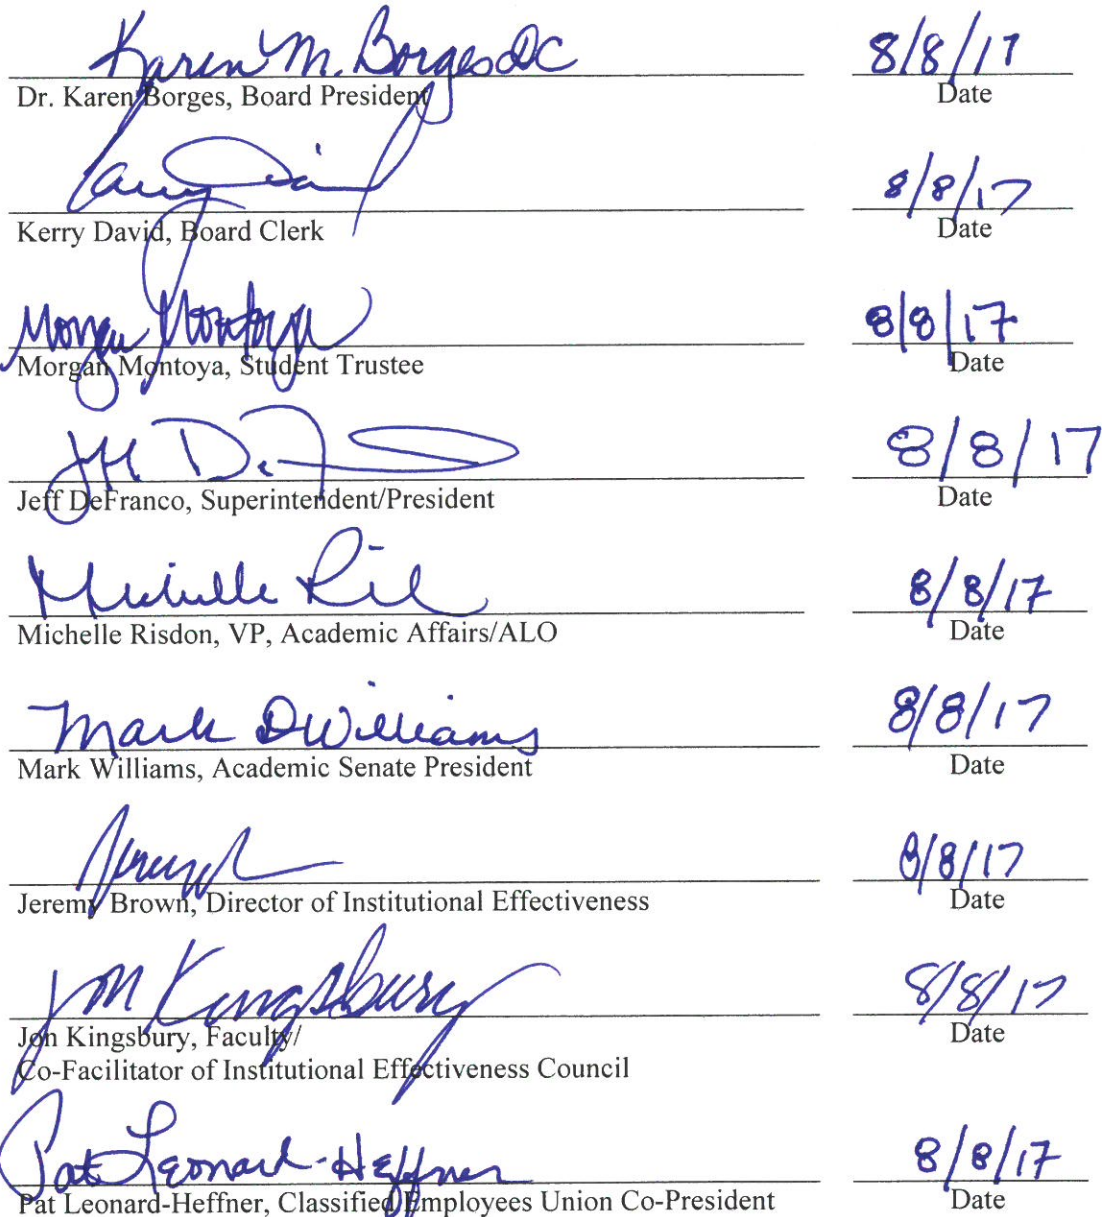 Karen M. Borges DC 8/8/17
Dr. Karen Borges, Board President Date
8/8/17
Kerry David, Board Clerk Date
Morgan Montoya 8/8/17
Morgan Montoya, Student Trustee Date
Jeff De 8/8/17
Jeff DeFranco, Superintendent/President Date
Michelle 8/8/17
Michelle Risdon, VP, Academic Affairs/ALO Date
Mark D Williams 8/8/17
Mark Williams, Academic Senate President Date
8/8/17
Jeremy Brown, Director of Institutional Effectiveness Date
Jon Kingsbury 8/8/17
Jon Kingsbury, Faculty/ Date
Co-Facilitator of Institutional Effectiveness Council
Pat Leonard-Heffner 8/8/17
Pat Leonard-Heffner, Classified Employees Union Co-President Date